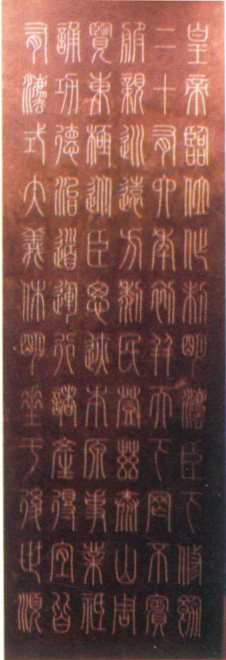 皇帝臨位作制明灋臣下脩飭
二十有六年初并天下罔不賓
服親巡遠方黎民登茲泰山周
覽東極從臣思迹本原事業祗
誦功德治道運行諸產得宜皆
有灋式大義休明垂于後世順